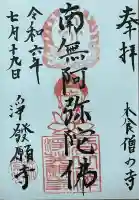 奉拝
木食僧の寺
南無阿弥陀佛
令和六年
七月十九日
浄發願寺